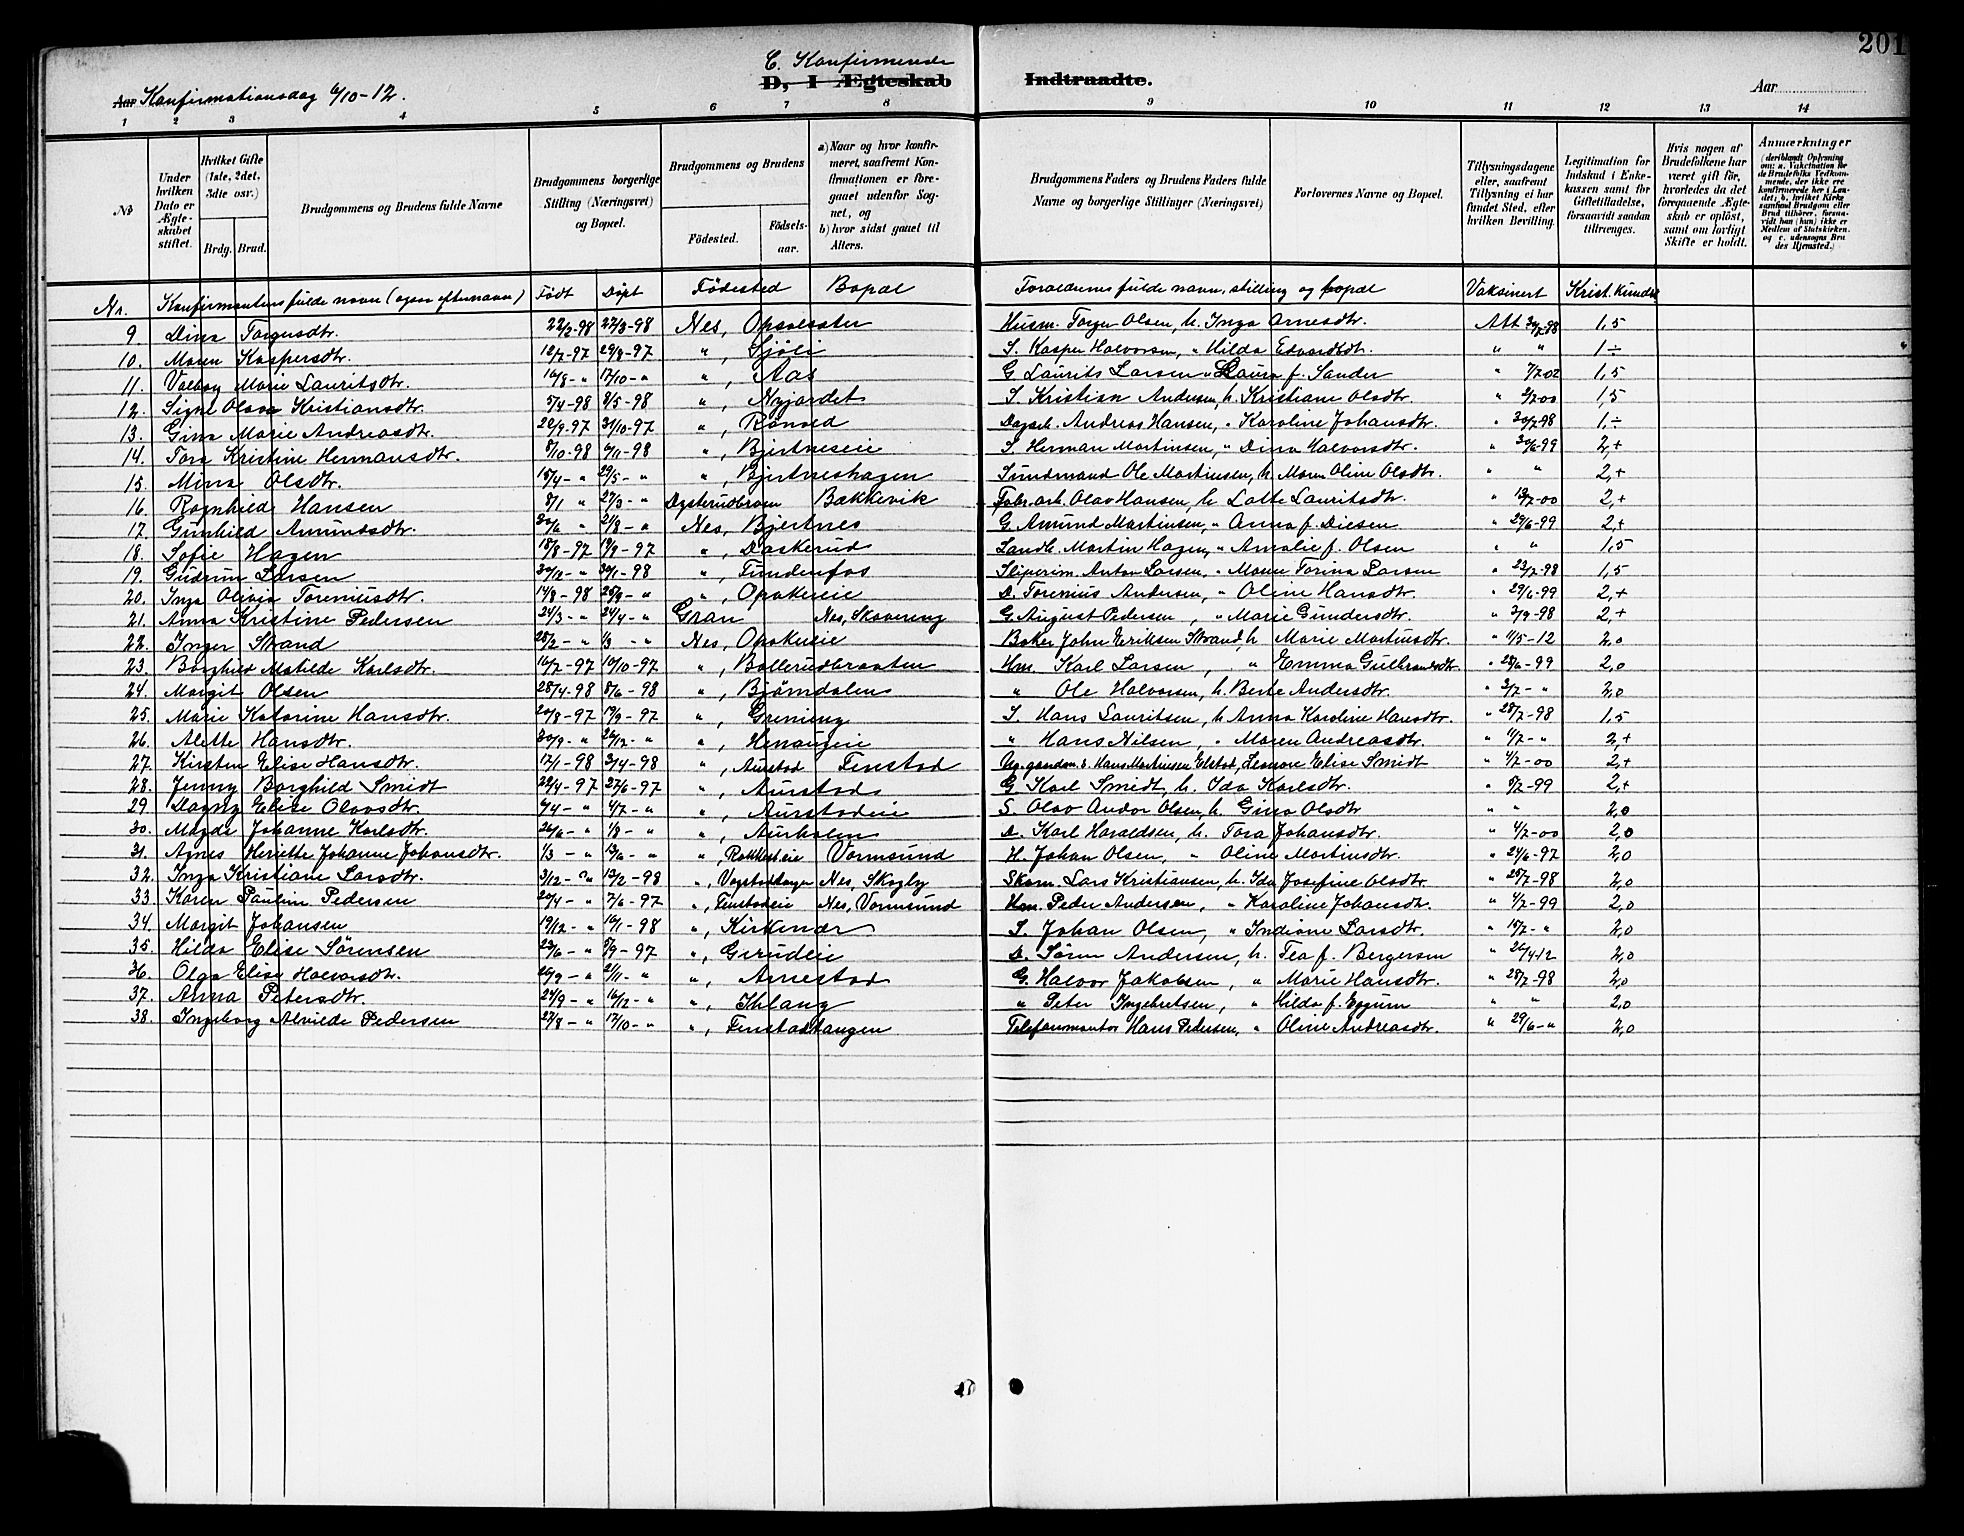 201
C. Konfirmerede
D, I Ægteskab Indtraadte.
Aar Konfirmationsdag 6/10-12. Aar
1 2 3 4 5 6 7 8 9 10 11 12 13 14
№
Under hvilken Dato er Ægteskabet stiftet.
Hvilket Gifte (1ste, 2det, 3die osv.)
Brdg. Brud.
Brudgommens og Brudens fulde Navne
Brudgommens borgerlige Stilling (Næringsvei) og Bopæl.
Brudgommens og Brudens
Födested. Födsels-aar.
a) Naar og hvor konfirmeret, saafremt Konfirmationen er foregaaet udenfor Sognet, og
b) hvor sidst gaaet til Alters.
Brudgommens Faders og Brudens Faders fulde Navne og borgerlige Stillinger (Næringsvei)
Forlovernes Navne og Bopæl.
Tillysningsdagene eller, saafremt Tillysning ei har fundet Sted, efter hvilken Bevilling.
Legitimation for Indskud i Enkekassen samt for Giftetilladelse, forsaavidt saadan tiltrænges.
Hvis nogen af Brudefolkene har været gift för, hvorledes da det foregaaende Ægteskab er oplöst, samt om lovligt Skifte er holdt.
Anmærkninger
(deriblandt Oplysning om: a. Vakcination for de Brudefolks Vedkommende, der ikke ere konfirmerede her i Landet; b. hvilket Kirkesamfund Brudgom eller Brud tilhörer, forsaavidt han (hun) ikke er Medlem af Statskirken. og c. udensogns Brudes Hjemsted.)
Nr. Konfirmantens fulde navn (ogsaa efternavn) Födt Döpt Födested Bopæl Foraeldrenes fulde navn, stilling og bopæl Vaksinert Krist. kundsk.
9 Dina Torgersdtr. 22/2-98 27/3-98 Nes, Opsalsæter Husm. Torger Olsen, h. Inga Arnesdtr. Att 1,5
10. Maren Kaspersdtr. 12/7-97 29/8-97 ", Sjöli S. Kasper Halvorsen, " Hilda Edvardsdtr. " " 1÷
11. Valborg Marie Lauritsdtr. 16/8-" 17/10-" ", Aas G Laurits Larsen " Laura f. Sander " 7/7-02 1,5
12. Signe Olava Kristiansdtr. 5/4-98 8/5-98 ", Nyjordet S. Kristian Andersen, h. Kristiane Olsdtr. " 1,5
13. Gina Marie Andreasdtr. 22/9-97 31/10-97 ", Ranved Dagarb. Andreas Hansen, " Karoline Johansdtr. " 1,÷
14. Tora Kristine Hermansdtr. 8/10-98 6/11-98 ", Bjertneseie S. Herman Martinsen, " Dina Halvorsdtr. " 30/6-99 2,+
15. Mina Olsdtr. 15/4-" 29/5-" ", Bjertneshagen Sundmand Ole Martinsen, h. Maren Oline Olsdtr. " " 2,+
16. Ragnhild Hansen 8/1 " 27/3-" Dysterudbraaen Bækkevik Fabr.arb. Olav Hansen, h. Lotte Lauritsdtr. " 13/7-00 2,+
17. Gunhild Amundsdtr. 30/6 " 21/8-" Nes, Bjertnes G. Amund Martinsen, " Anna f. Diesen " 29/6-99 2,+
18. Sofie Hagen 18/8-97 19/9-97 ", Daskerud Landh. Martin Hagen, " Amalie f. Olsen " " 1,5
19. Gudrun Larsen 30/10-" 30/1-98 ", Fundenfos Sliperim. Anton Larsen, " Maren Torina Larsen " 23/7-98 1,5
20. Inga Olivia Toreniusdtr. 14/8-98 25/9-" ", Opakereie D. Torenius Andersen, " Oline Hansdtr. " 29/6-99 2,+
21. Anna Kristine Pedersen 24/3-" 24/4-" Gran Nes, Skovering G. August Pedersen, " Marie Gundersdtr. " 3/9-98 2,+
22. Inger Strand 25/2-" 1/3-" Nes, Opakereie Baker John Eriksen Strand, h. Marie Martinsdtr. " 11/5-12 2,0
23. Borghild Matilde Karlsdtr. 16/7-97 10/10-97 ", Ballerudbraaten Hm. Karl Larsen, " Emma Gulbrandsdtr. " 28/6-99 2,0
24. Margit Olsen 28/4-98 8/6-98 ", Bjørndalen " Ole Halvorsen, h. Berte Andersdtr. " 3/7-" 2,0
25. Marie Katarine Hansdtr. 20/8-97 19/9-97 ", Grening S. Hans Lauritsen, h. Anna Karoline Hansdtr. " 28/7-98 1,5
26. Alette Hansdtr. 30/9-" 26/12-" ", Henaugeie " Hans Nilsen, " Maren Andreasdtr. " 2,+
27. Kirsten Elise Hansdtr. 17/1-98 3/4-98 ", Aurstad Finstad Hans Martinsen Elstad, Leonore Elise Smidt " 2,+
28. Jenny Borghild Smidt 22/4-97 27/6-97 ", Aurstad G Karl Smidt, h. Ida Karlsdtr. " 2,+
29 Dagny Elise Olavsdtr. 9/4-" 4/7-" ", Aurstadeie S. Olav Andor Olsen, h. Gina Olsdtr " " 2,0
30. Magda Johanne Karlsdtr. 26/6-" 1/8-" ", Aurhalen D. Karl Haraldsen, h. Tora Johansdtr. " 2,0
31. Agnes Henriette Johanne Johansdtr. 1/3-" 13/6-" ", Rakkestadeie Vormsund H. Johan Olsen, " Oline Martinsdtr. " 24/6-97 2,0
32. Inga Kristiane Larsdtr. 3/12-" 13/2-98 ", Vogstadhagen Nes, Skogly Skom. Lars Kristiansen, h. Ida Josefine Olsdtr. " 25/7-98 2,0
33. Karen Pauline Pedersen 20/4-" 7/6-97 ", Finstadeie Nes, Vormsund Hm. Peder Andersen, " Karoline Johansdtr. " 2,0
34. Margit Johansen 19/12-" 16/1-98 ", Kirkenær S. Johan Olsen, " Indiane Larsdtr. " 15/7-" 2,0
35. Hilda Elise Sørensen 23/6-" 5/9-97 ", Gerudeie D. Søren Andersen, h. Tea f. Bergersen " 26/4-12 2,0
36. Olga Elise Halvorsdtr. 26/9-" 21/11-" ", Arnestad G. Halvor Jakobsen, " Marie Hansdtr. " 28/7-98 2,0
37. Anna Petersdtr. 24/9-" 16/12-" ", Ihlang " Peter Ingebretsen, " Hilda f. Eggum " " 2,0
38. Ingeborg Alvilde Pedersen 27/8-" 17/10-" ", Finstadtangen Telefonmontør Hans Pedersen, " Oline Andreasdtr. " 29/6-" 2,0